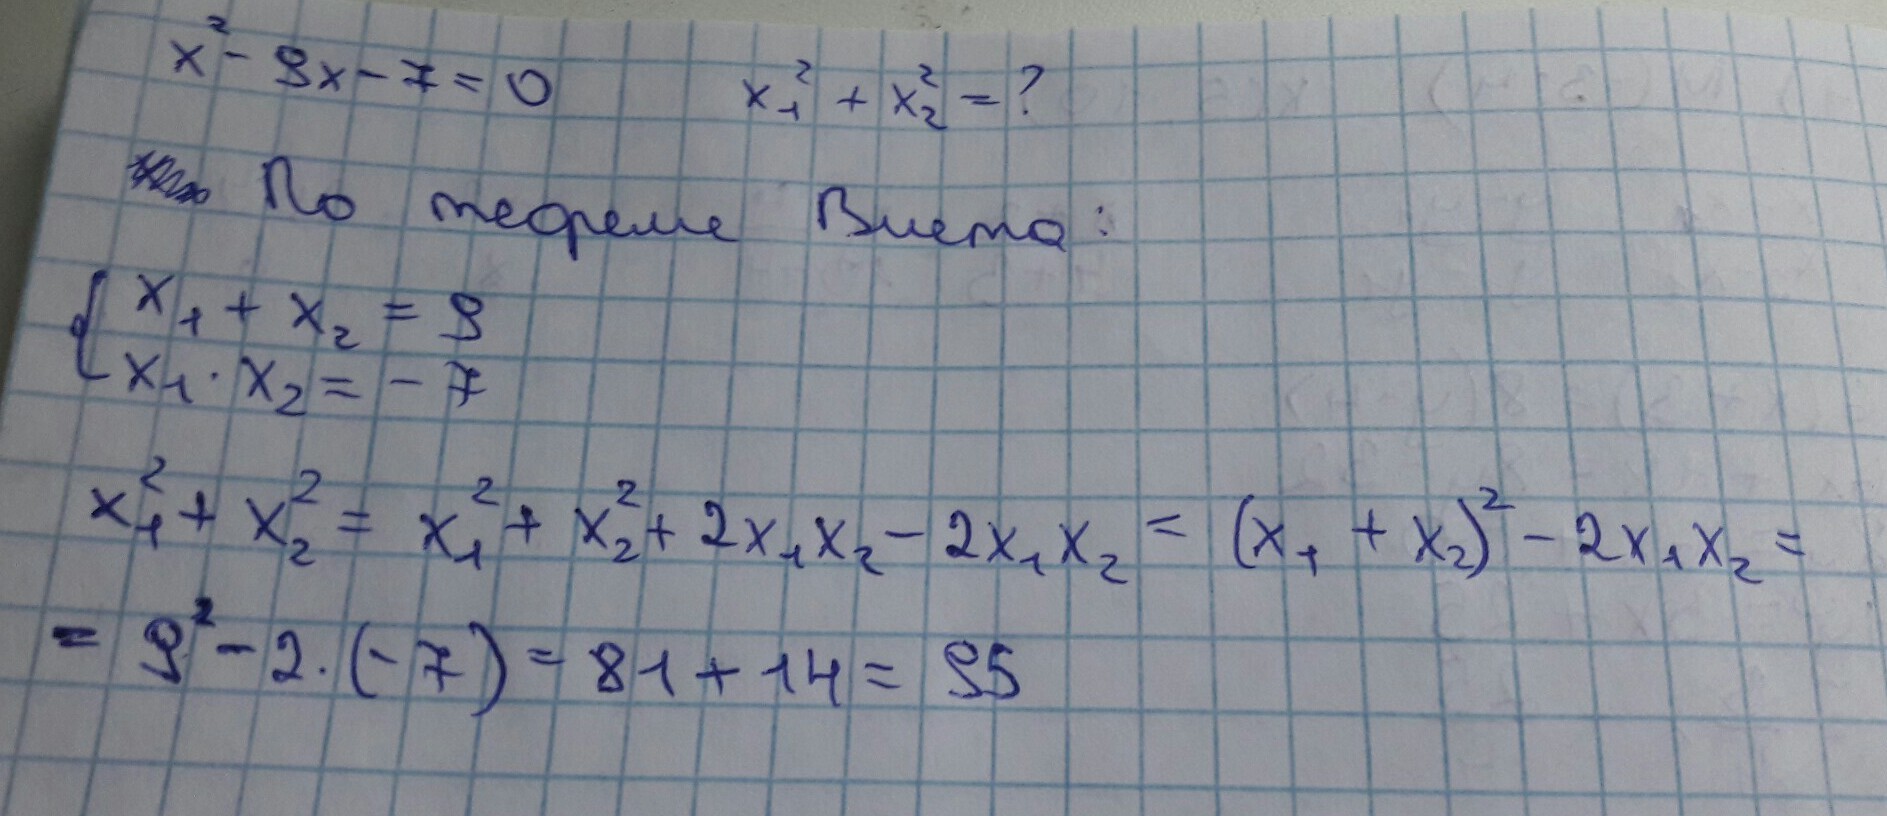 x² - 9x - 7 = 0 x₁² + x₂² = ?
По теореме Виета:
x₁ + x₂ = 9
x₁ · x₂ = - 7
x₁² + x₂² = x₁² + x₂² + 2x₁x₂ - 2x₁x₂ = (x₁ + x₂)² - 2x₁x₂ =
= 9² - 2 · (-7) = 81 + 14 = 95